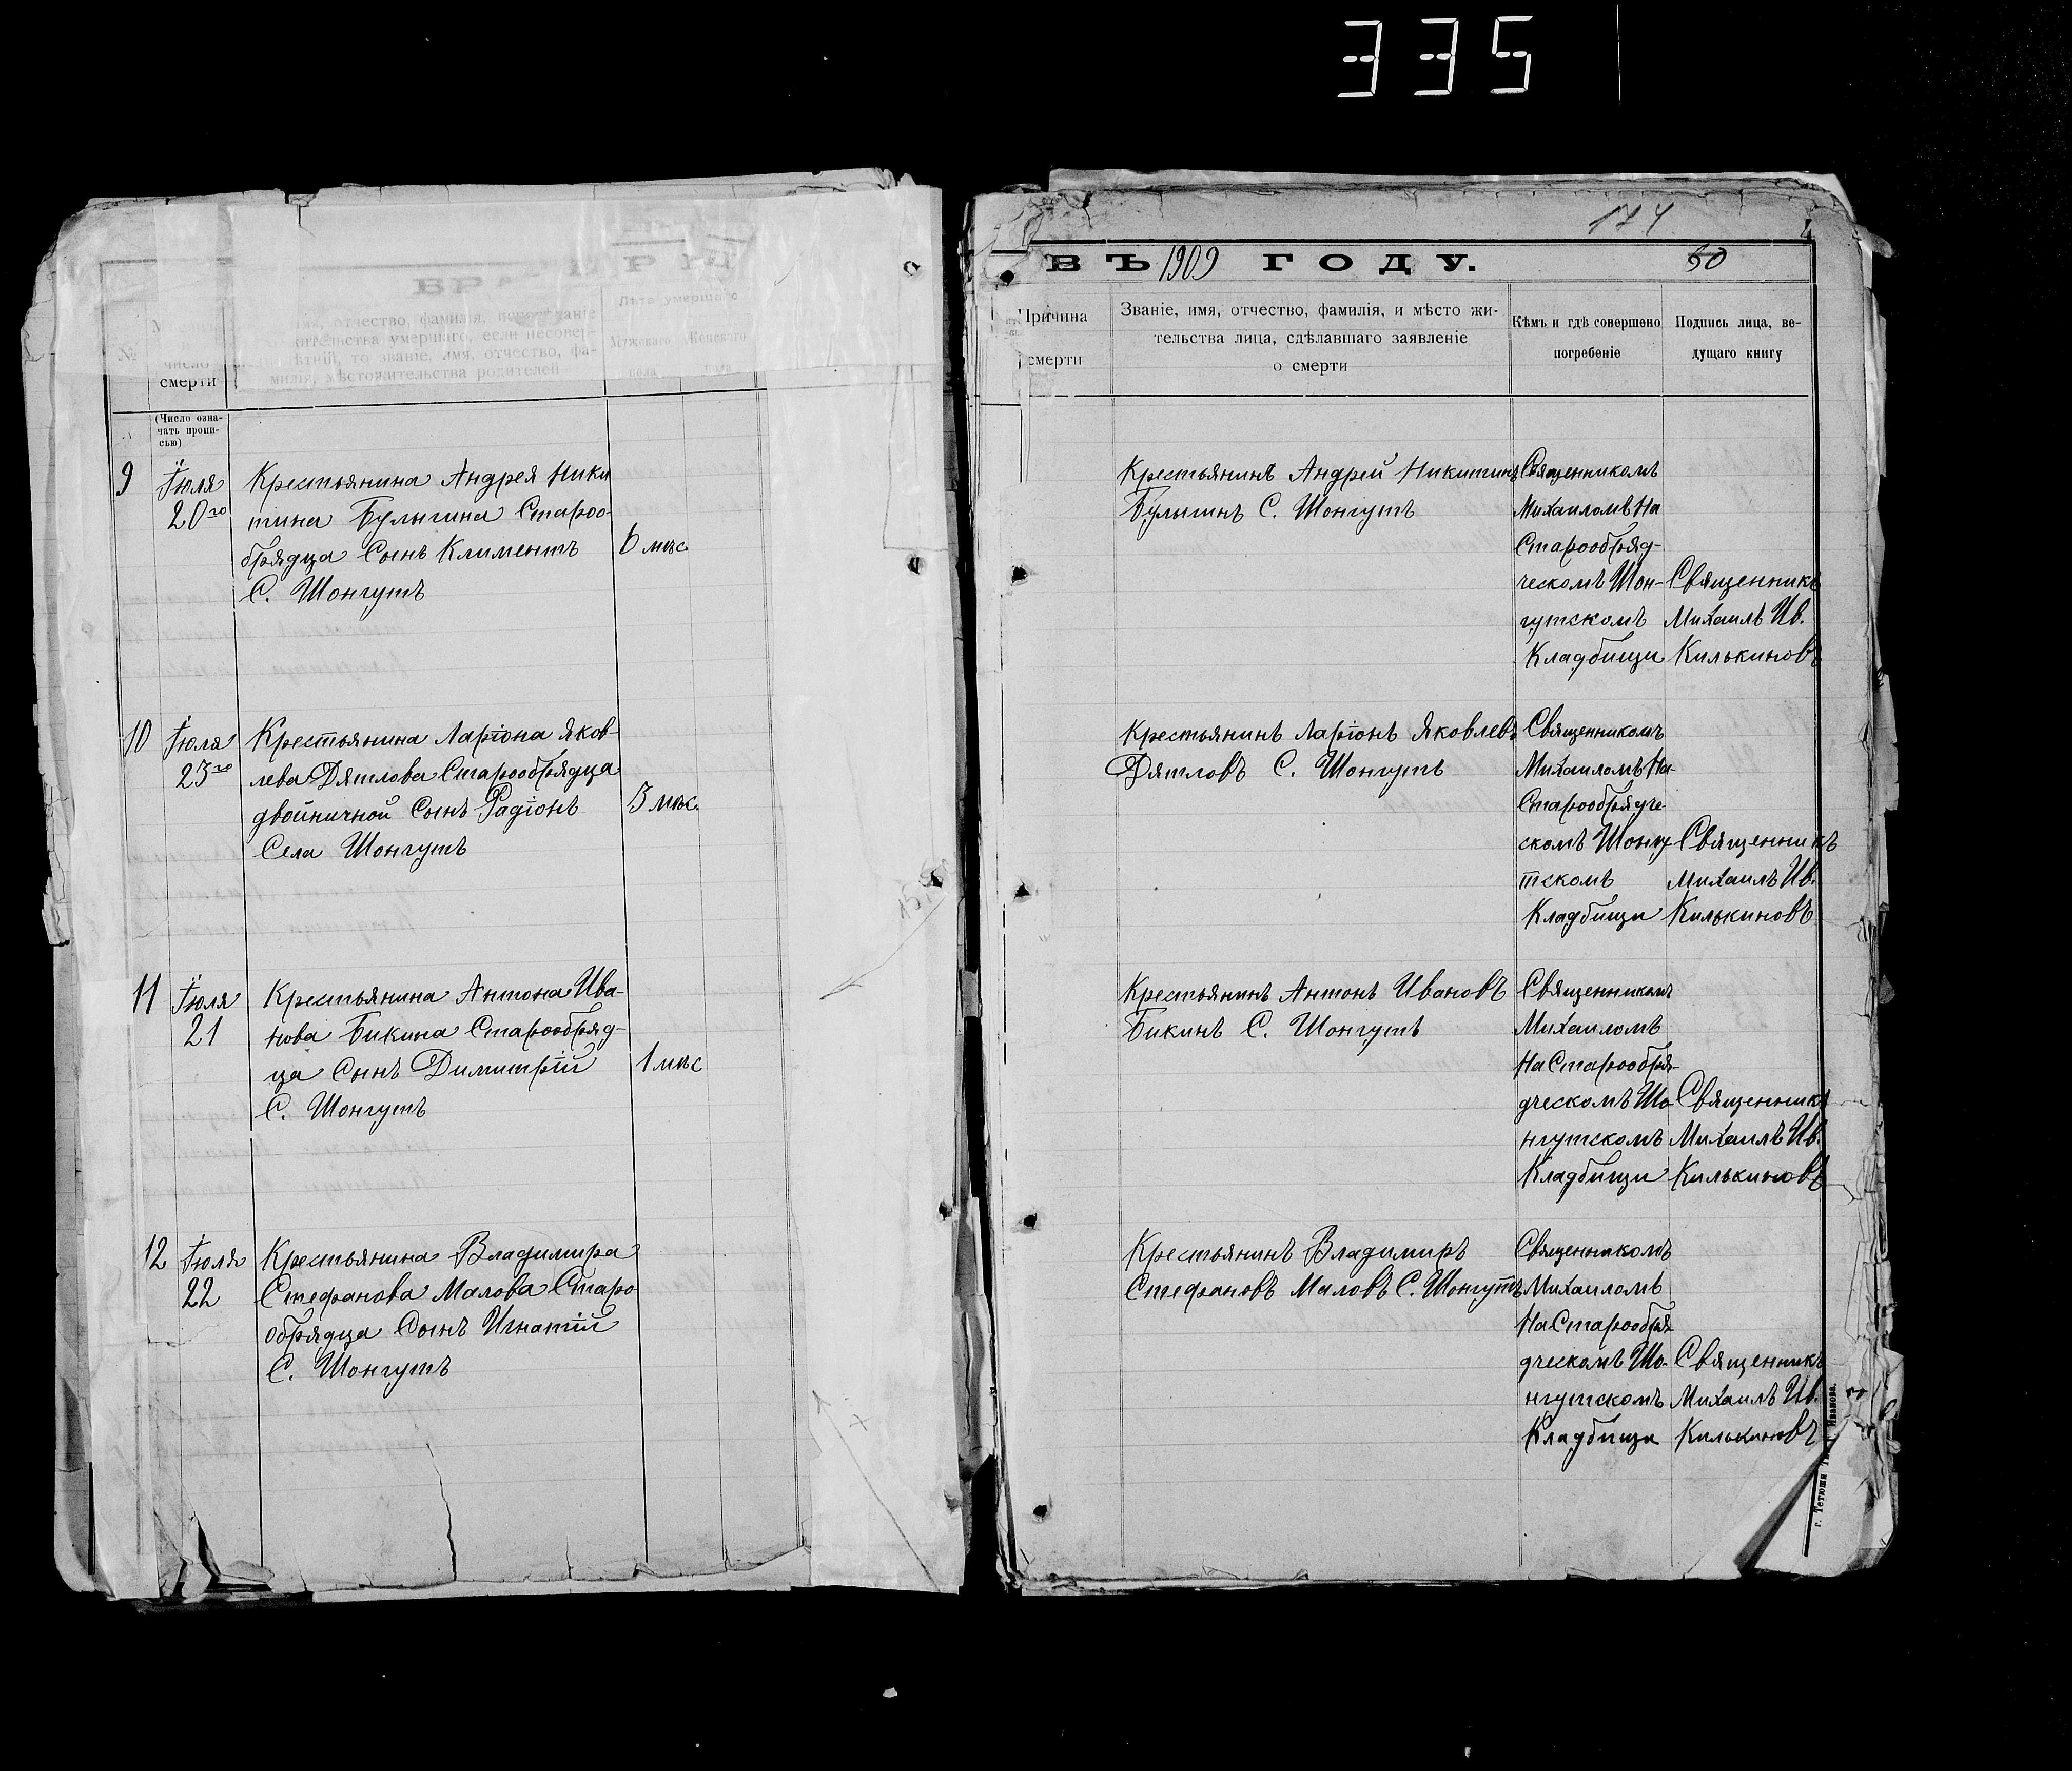 335
174
ВЪ 1909 ГОДУ.
50
№
число
смерти
(Число озна-
чать пропи-
сью)
имя, отчество, фамилія,
жительства умершаго, если несовер-
то званіе, имя, отчество, фа-
милія, мѣстожительства родителей
Лѣта умершаго
Мужского
пола
Женскаго
пола
9
Іюля
20го
Крестьянина Андрея Ники
тина Булыгина Староо-
брядца Сынъ Климентъ
С. Шонгутъ
6 мѣс
10
Іюля
23го
Крестьянина Ларіона Яков-
лева Дятлова Старообрядца
двойничной Сынъ Радіонъ
Села Шонгутъ
3 мѣс.
11
Іюля
21
Крестьянина Антона Ива-
нова Бикина Старообряд-
ца Сынъ Димитрій
С. Шонгутъ
1 мѣс
12
Іюля
22
Крестьянина Владимира
Стефанова Малова Старо
обрядца Сынъ Игнатій
С. Шонгутъ
Причина
смерти
Званіе, имя, отчество, фамилія, и мѣсто жи-
тельства лица, сдѣлавшаго заявленіе
о смерти
Кѣмъ и гдѣ совершено
погребеніе
Подпись лица, ве-
дущаго книгу
Крестьянинъ Андрей Никитинъ
Булыгинъ С. Шонгутъ
Священникомъ
Михаиломъ На
Старообряд-
ческомъ Шон-
гутскомъ
Кладбищи
Священникъ
Михаилъ Ив.
Килькиновъ
Крестьянинъ Ларіонъ Яковлевъ
Дятловъ С. Шонгутъ
Священникомъ
Михаиломъ На-
Старообрядче-
скомъ Шонгу-
тскомъ
Кладбищи
Священникъ
Михаилъ Ив.
Килькиновъ
Крестьянинъ Антонъ Ивановъ
Бикинъ С. Шонгутъ
Священникомъ
Михаиломъ
На Старообря-
дческомъ Шо-
нгутскомъ
Кладбищи
Священникъ
Михаилъ Ив.
Килькиновъ
Крестьянинъ Владимиръ
Стефановъ Маловъ С. Шонгутъ
Священникомъ
Михаиломъ
На Старообря-
дческомъ Шо-
нгутскомъ
Кладбищи
Священникъ
Михаилъ Ив.
Килькиновъ
г. Тетюши Иванова.